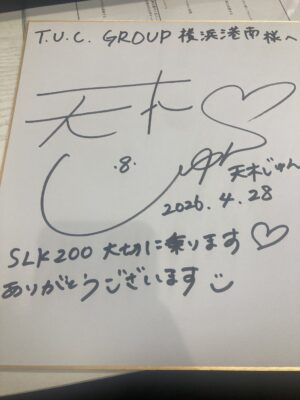 T.U.C. GROUP 横浜港南 様へ
天木じゅん
.8.
天木じゅん
2026.4.28
SLK200 大切に乗ります♡
ありがとうございます